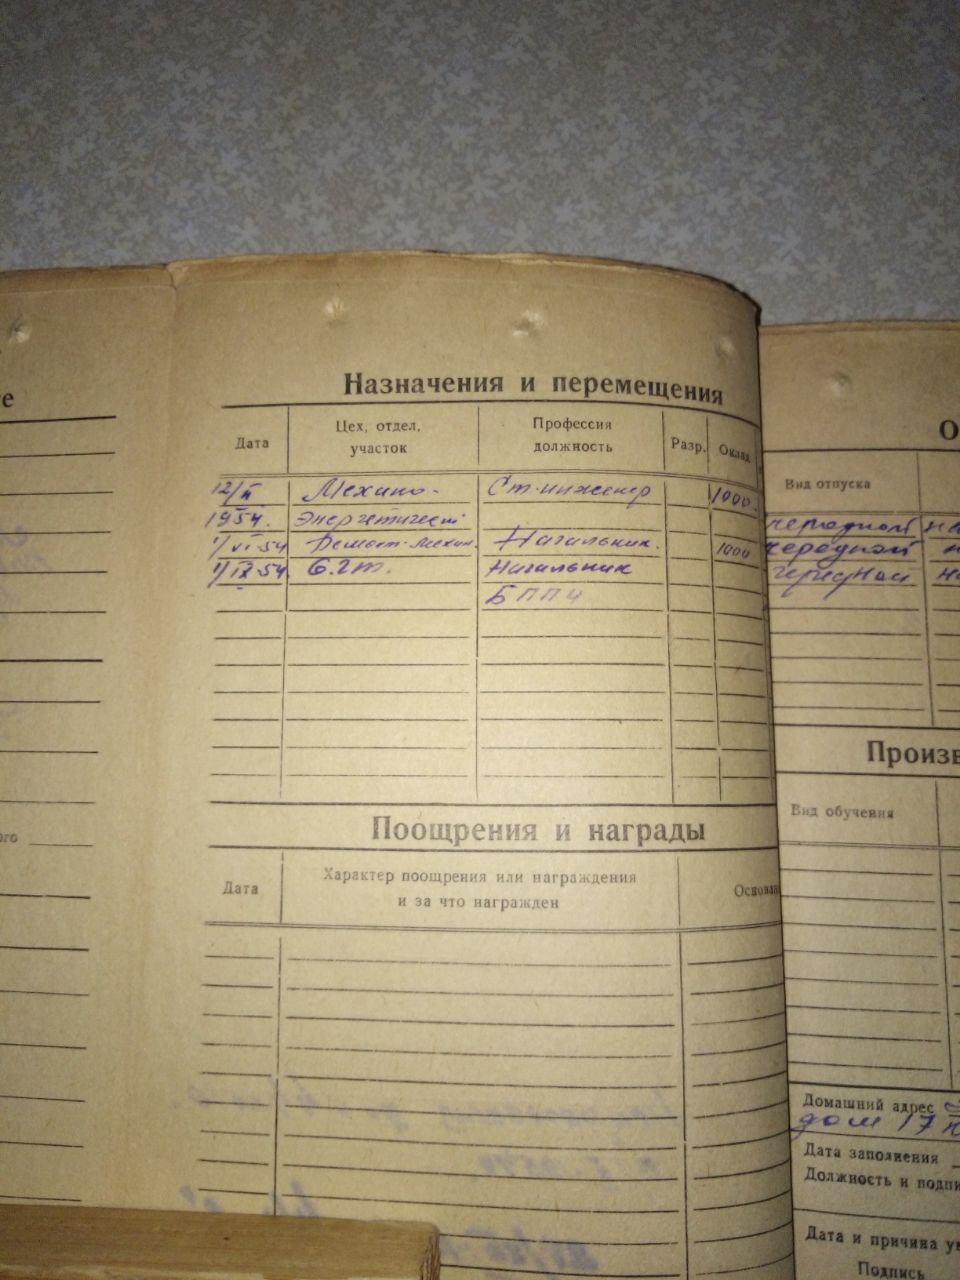 Назначения и перемещения
Дата Цех, отдел, участок Профессия должность Разр. Оклад
12/II Механо- Ст. инженер 1000
1954. Энергетическ
1/VI-54 Ремонт. механ. Начальник. 1000
1/IX-54 Начальник
БППЧ
Поощрения и награды
Дата Характер поощрения или награждения и за что награжден Основан
Вид отпуска
очередной
очередной
Произв
Вид обучения
Домашний адрес
дом 17
Дата заполнения
Должность и подпи
Дата и причина ув
Подпись